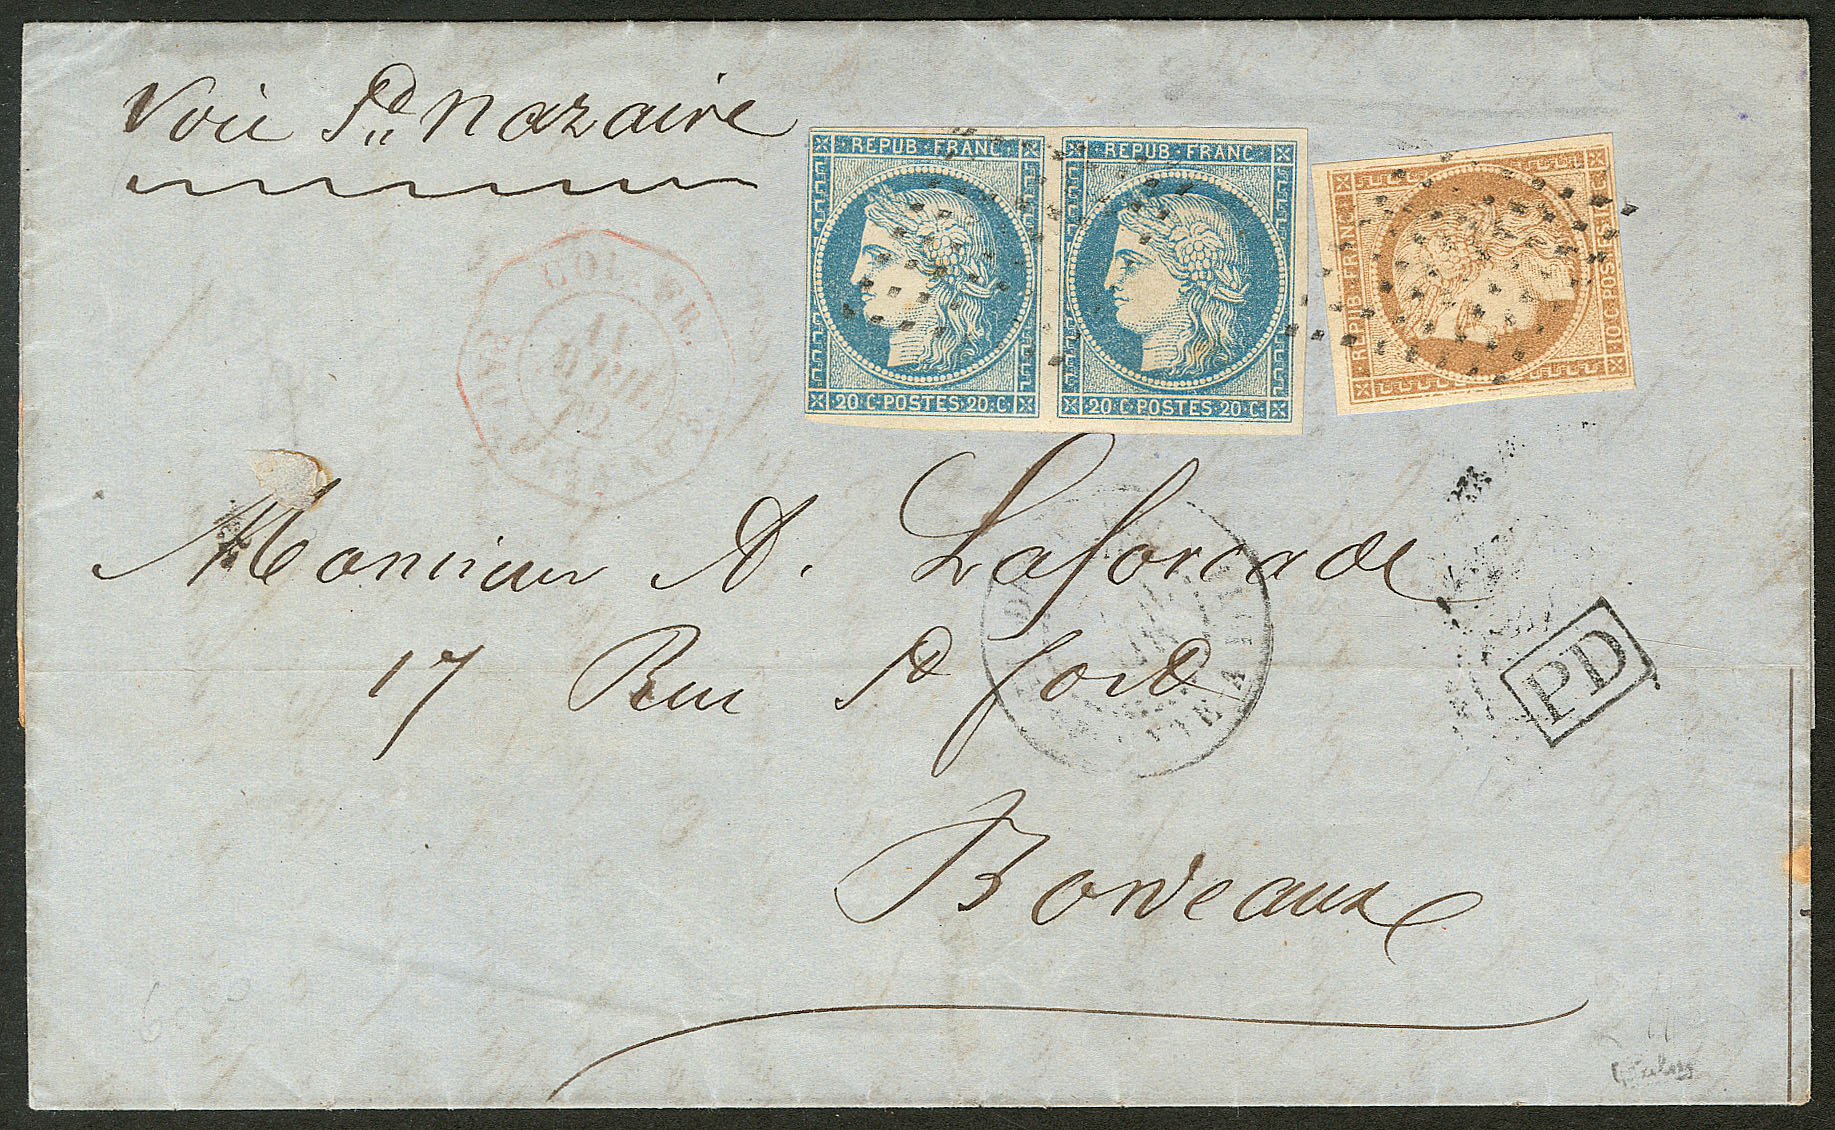 Voie St nazaire
REPUB · FRANC · REPUB · FRANC
20 · C · POSTES · 20 · C · 20 · C · POSTES · 20 · C ·
REPUB · FRANC
10 · C · POSTES
COL. FR.
11
AVRIL
72
Monsieur A. Laforcade
17 Rue St fort
PD
Bordeaux